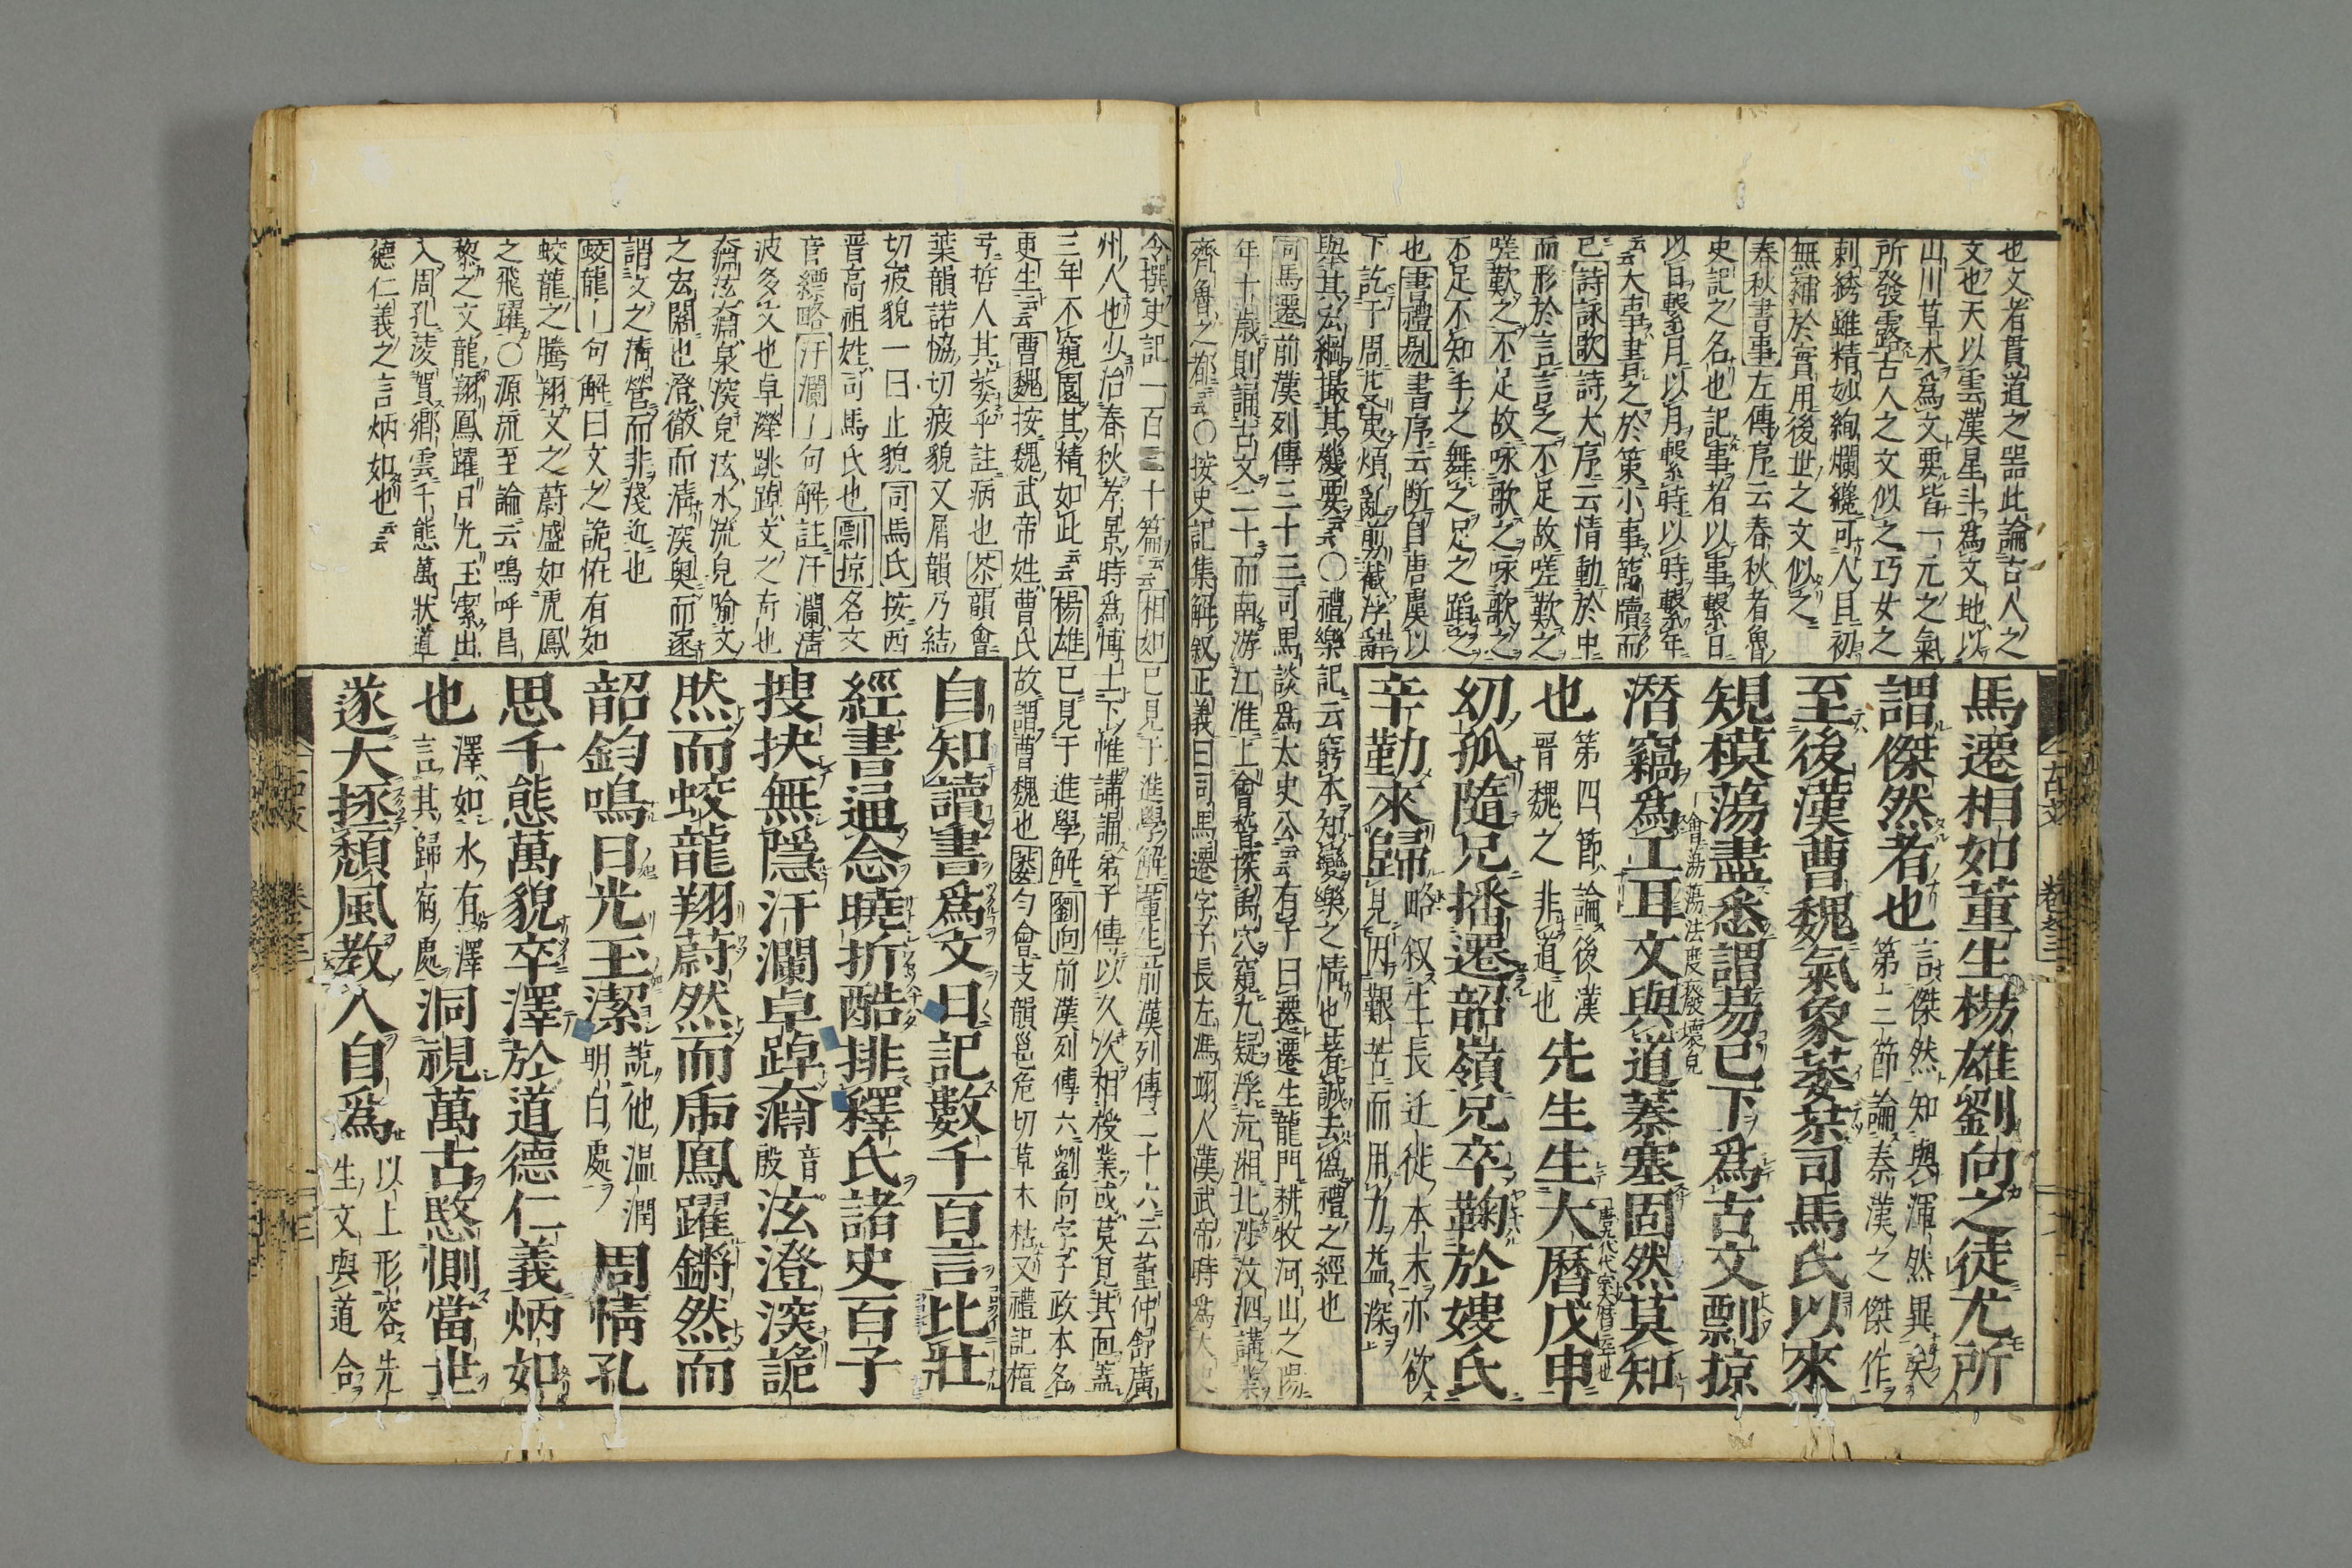 也文者貫道之噐此論古人之
文也天以雲漢星斗爲文地以
山川草木爲文要皆一元之氣
所發露古人之文似之巧女之
刺綉雖精妙絢爛纔可人目初
無補於實用後世之文似之
春秋書事左傳序云春秋者魯
史記之名也記事者以事繫日
以日繫月以月繫時以時繫年
云云大事書之於策小事簡牘而
已詩詠歌詩大序云情動於中
而形於言言之不足故嗟歎之
嗟歎之不足故咏歌之咏歌之
不足不知手之舞之足之蹈之
也書禮剔書序云断自唐虞以
下訖于周芟夷煩乱剪截浮辞
舉其宏綱撮其機要云云〇禮樂記云窮本知變樂之情也著誠去偽禮之經也
司馬遷前漢列傳三十三司馬談爲太史公云云有子曰遷遷生龍門耕牧河山之陽
年十歳則誦古文二十而南游江淮上會稽探禹穴窺九疑浮沅湘北渉汶泗講業
齊魯之都云云〇按史記集解叙正義曰司馬遷字子長左馮翊人漢武帝時爲太史
馬遷相如董生楊雄劉向之徒尤所
謂傑然者也言傑然知與渾然異矣第三節論秦漢之傑作
至後漢曹魏氣象萎苶司馬氏以來
規模蕩盡悉謂易已下爲古文剽掠
潜竊爲工耳文與道蓁塞固然莫知
會蕩蕩法度廢壊皃
也第四節論後漢晋魏之非道也先生生大曆戊申
唐九代代宗大曆三年也
幼孤隨兄播遷韶嶺兄卒鞠於嫂氏
辛勤來歸略叙生長迁徙本末亦欲見历艱苦而用力益深
古文 卷之三
令撰史記一百三十篇云云相如已見于進學解董生前漢列傳二十六云董仲舒廣
州人也少治春秋孝景時爲博士下惟講誦弟子傳以久次相授業或莫見其面蓋
三年不窺園其精如此云云楊雄已見于進學解劉向前漢列傳六劉向字子政本名
更生云云曹魏按魏武帝姓曹氏故謂曹魏也萎匀會支韻邕危切草木枯又禮記檀
弓哲人其萎乎註病也苶韻會
葉韻諾恊切疲貌又屑韻乃結
切疲貌一曰止貌司馬氏按西
晋高祖姓司馬氏也剽掠名文
官縹略汗瀾〡句解註汗瀾清
波多文也卓犖跳踔文之奇也
奫泫奫泉深皃泫水流皃喻文
之宏闊也澄徹而清深奥而遂
謂文之清營而非淺近也
蛟龍〡句解曰文之詭恠有如
蛟龍之騰翔文之蔚盛如虎鳳
之飛躍〇源流至論云鳴呼昌
黎之文龍翔鳳躍日光玉潔出
入周孔凌賀卿雲千態萬狀道
德仁義之言炳如也云云
自知讀書爲文日記數千百言比壯
經書逼念曉折酷排釋氏諸史百子
搜抉無隱汗瀾卓踔奫音殷泫澄深詭
然而蛟龍翔蔚然而虎鳳躍鏘然而
韶鈞鳴日光玉潔説他温潤明白處周情孔
思千態萬貌卒澤於道德仁義炳如
也澤如水有澤言其歸宿處洞視萬古愍惻當世
遂大拯頽風教人自爲以上形容先生文與道合